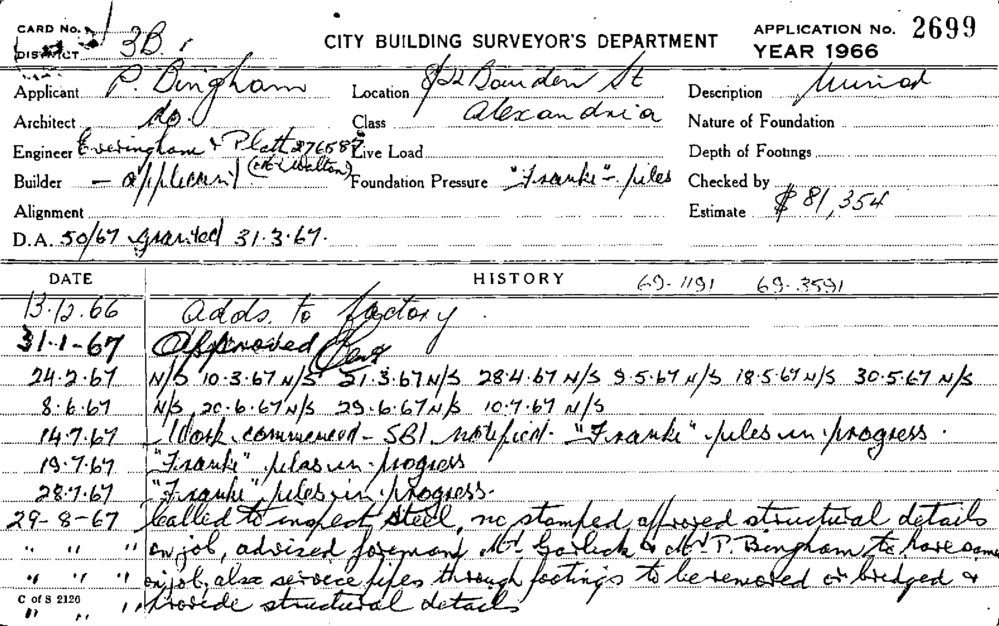 CARD No.
DISTRICT 3B.
CITY BUILDING SURVEYOR'S DEPARTMENT
APPLICATION No. 2699
YEAR 1966
Applicant P. Bingham
Location 8/22 Bowden St
Description
Architect do.
Class Alexandria
Nature of Foundation
Engineer Everingham & Platt 276587
Live Load
Depth of Footings
Builder - applicant (Mr Walton)
Foundation Pressure "Franki" - piles
Checked by
Alignment
Estimate $81,354
D.A. 50/67 granted 31.3.67.
DATE HISTORY 69-1191 69-3591
13.12.66 adds. to factory.
31-1-67 Approved
24.2.67 N/S 10.3.67 N/S 21.3.67 N/S 28.4.67 N/S 9.5.67 N/S 18.5.67 N/S 30.5.67 N/S
8.6.67 N/S, 20.6.67 N/S 29.6.67 N/S 10.7.67 N/S
14.7.67 Work commenced - SBI notified. "Franki" piles in progress.
19.7.67 "Franki" piles in progress
28.7.67 "Franki" piles in progress.
29-8-67 Called to inspect steel, no stamped, approved structural details
" " " on job, advised foreman Mr Garlick & Mr P. Bingham, to have same
" " " on job, also service pipes through footings to be removed or bridged &
C of S 2126 " " " provide structural details